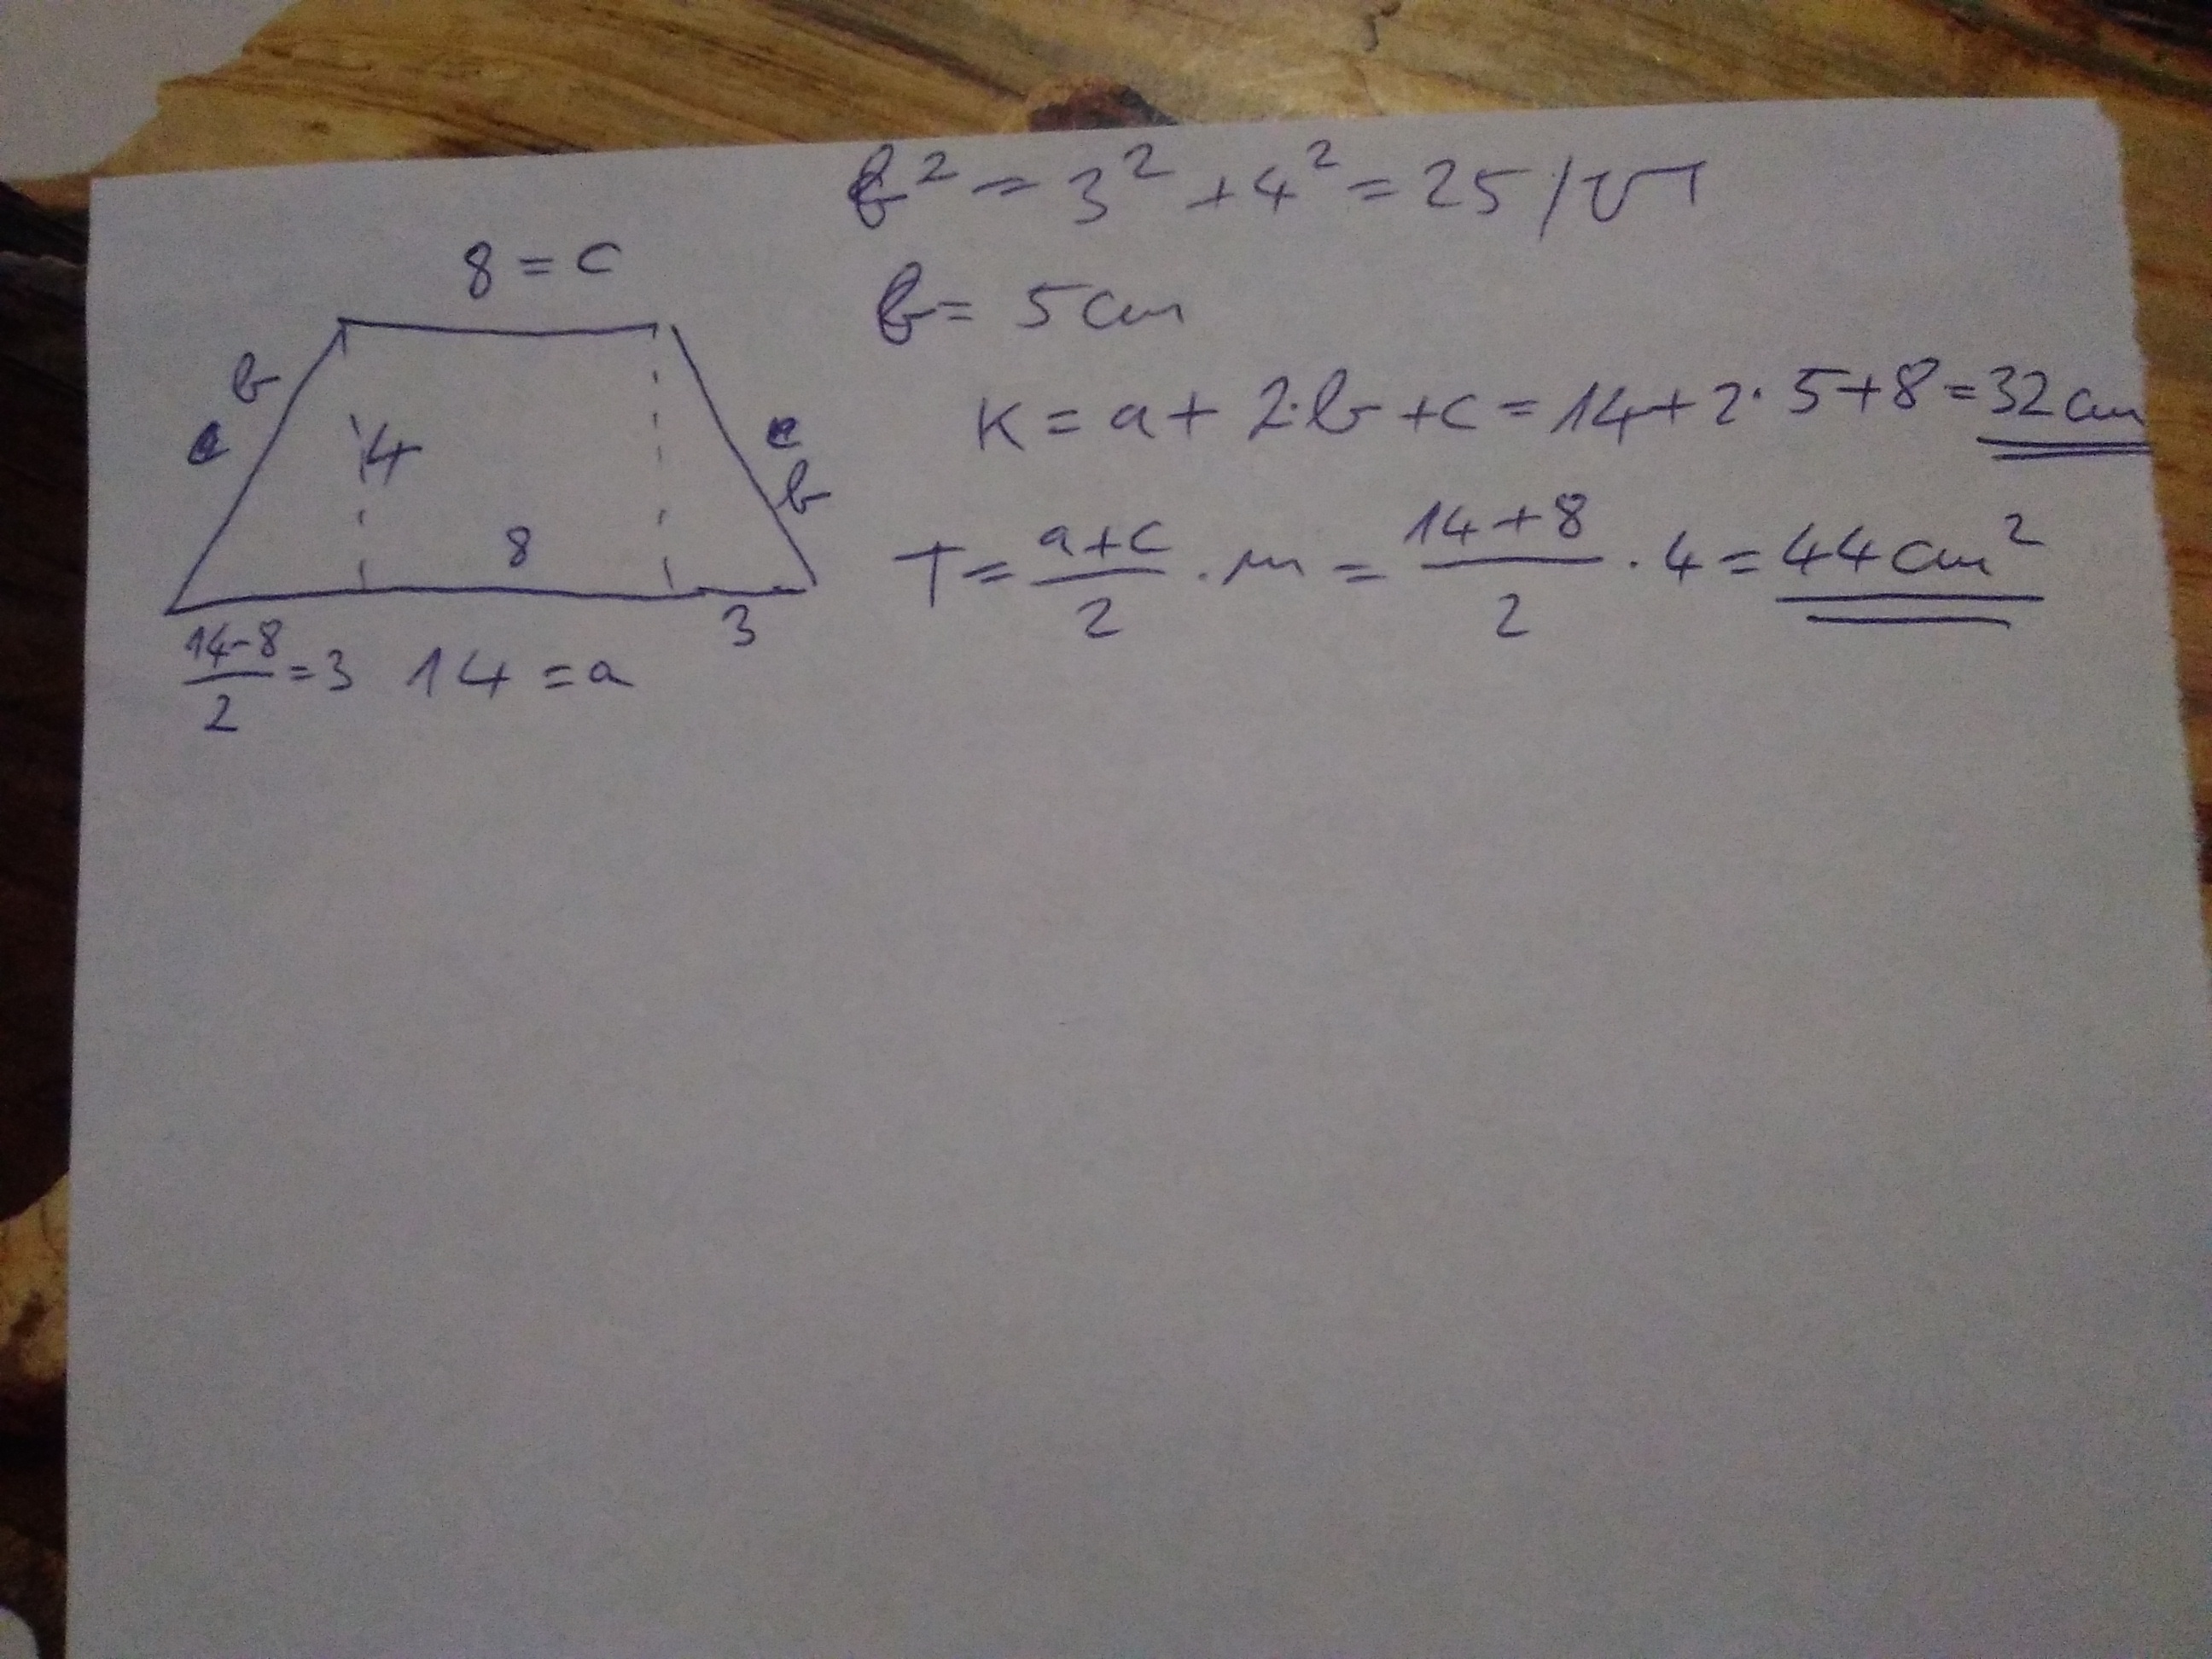 8 = c
b
4
8
b
3
(14-8)/2 = 3
14 = a
b² = 3² + 4² = 25 /√
b = 5 cm
K = a + 2·b + c = 14 + 2·5 + 8 = 32 cm
T = (a+c)/2 · m = (14+8)/2 · 4 = 44 cm²